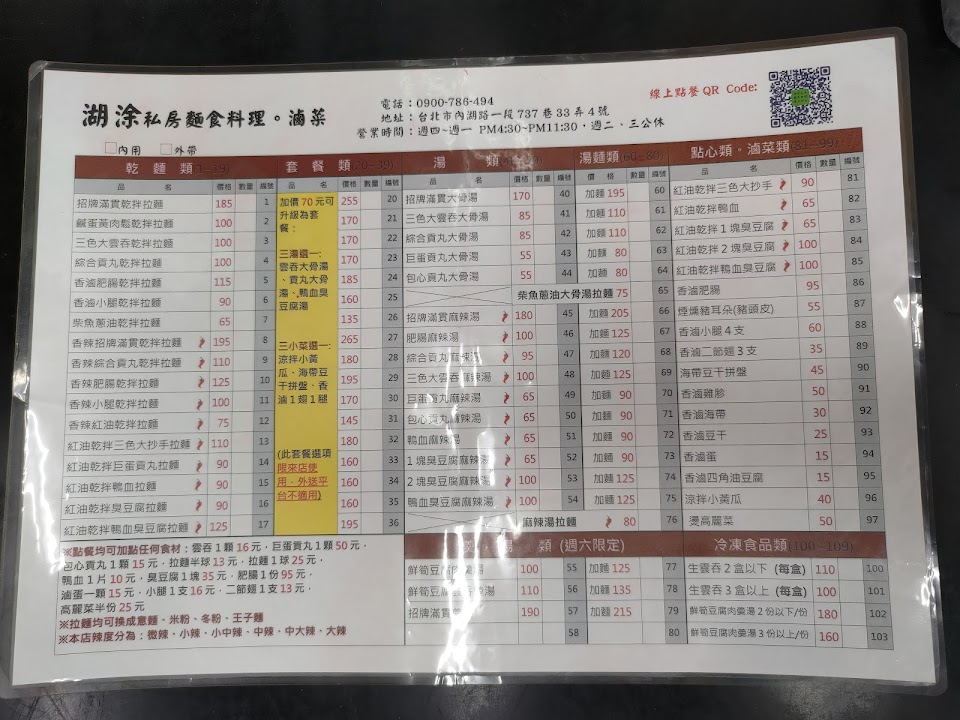 湖塗私房麵食料理。滷菜
電話：0900-786-494
地址：台北市內湖路一段737巷33弄4號
營業時間：週四~週一 PM4:30~PM11:30，週二、三公休
線上點餐QR Code:
內用 外帶
乾麵類
品名 價格 數量 編號
招牌滿貫乾拌拉麵 185 1
鹹蛋黃肉鬆乾拌拉麵 100 2
三色大雲吞乾拌拉麵 100 3
綜合貢丸乾拌拉麵 100 4
香滷肥腸乾拌拉麵 115 5
香滷小腿乾拌拉麵 90 6
柴魚蔥油乾拌拉麵 65 7
香辣招牌滿貫乾拌拉麵 195 8
香辣綜合貢丸乾拌拉麵 110 9
香辣肥腸乾拌拉麵 125 10
香辣小腿乾拌拉麵 100 11
香辣紅油乾拌拉麵 75 12
紅油乾拌三色大抄手拉麵 110 13
紅油乾拌巨蛋貢丸拉麵 90 14
紅油乾拌鴨血拉麵 90 15
紅油乾拌臭豆腐拉麵 90 16
紅油乾拌鴨血臭豆腐拉麵 125 17
套餐類
品名 價格 數量 編號
加價70元可
升級為套
餐：
三湯選一:
雲吞大骨湯
、貢丸大骨
湯、鴨血臭
豆腐湯
三小菜選一:
涼拌小黃
瓜、海帶豆
干拼盤、香
滷1翅1腿
(此套餐選項
限來店使
用，外送平
台不適用)
255 20
170 21
170 22
170 23
185 24
160 25
135 26
265 27
180 28
195 29
170 30
145 31
180 32
160 33
160 34
160 35
195 36
湯類
品名 價格 數量 編號
招牌滿貫大骨湯 170 40
三色大雲吞大骨湯 85 41
綜合貢丸大骨湯 85 42
巨蛋貢丸大骨湯 55 43
包心貢丸大骨湯 55 44
柴魚蔥油大骨湯拉麵 75 65
招牌滿貫麻辣湯 180 45
肥腸麻辣湯 100 46
綜合貢丸麻辣湯 95 47
三色大雲吞麻辣湯 100 48
巨蛋貢丸麻辣湯 65 49
包心貢丸麻辣湯 65 50
鴨血麻辣湯 65 51
1塊臭豆腐麻辣湯 65 52
2塊臭豆腐麻辣湯 100 53
鴨血臭豆腐麻辣湯 100 54
麻辣湯拉麵 80 76
湯麵類
價格 數量 編號
加麵195 60
加麵110 61
加麵110 62
加麵 80 63
加麵 80 64
加麵205 66
加麵125 67
加麵120 68
加麵125 69
加麵 90 70
加麵 90 71
加麵 90 72
加麵 90 73
加麵125 74
加麵125 75
點心類。滷菜類
品名 價格 數量 編號
紅油乾拌三色大抄手 90 81
紅油乾拌鴨血 65 82
紅油乾拌1塊臭豆腐 65 83
紅油乾拌2塊臭豆腐 100 84
紅油乾拌鴨血臭豆腐 100 85
香滷肥腸 95 86
煙燻豬耳朵(豬頭皮) 55 87
香滷小腿4支 60 88
香滷二節翅3支 35 89
海帶豆干拼盤 45 90
香滷雞胗 50 91
香滷海帶 30 92
香滷豆干 25 93
香滷蛋 15 94
香滷四角油豆腐 15 95
涼拌小黃瓜 40 96
燙高麗菜 50 97
類 (週六限定)
鮮筍豆腐肉羹湯 100 55 加麵125 77
鮮筍豆腐 湯 110 56 加麵135 78
招牌滿貫 190 57 加麵215 79
58 80
冷凍食品類(100~109)
生雲吞2盒以下 (每盒) 110 100
生雲吞3盒以上 (每盒) 100 101
鮮筍豆腐肉羹湯2份以下/份 180 102
鮮筍豆腐肉羹湯3份以上/份 160 103
※點餐均可加點任何食材：雲吞1顆16元，巨蛋貢丸1顆50元，
包心貢丸1顆15元，拉麵半球13元，拉麵1球25元，
鴨血1片10元，臭豆腐1塊35元，肥腸1份95元，
滷蛋一顆15元，小腿1支16元，二節翅1支13元，
高麗菜半份25元
※拉麵均可換成意麵、米粉、冬粉、王子麵
※本店辣度分為：微辣、小辣、小中辣、中辣、中大辣、大辣